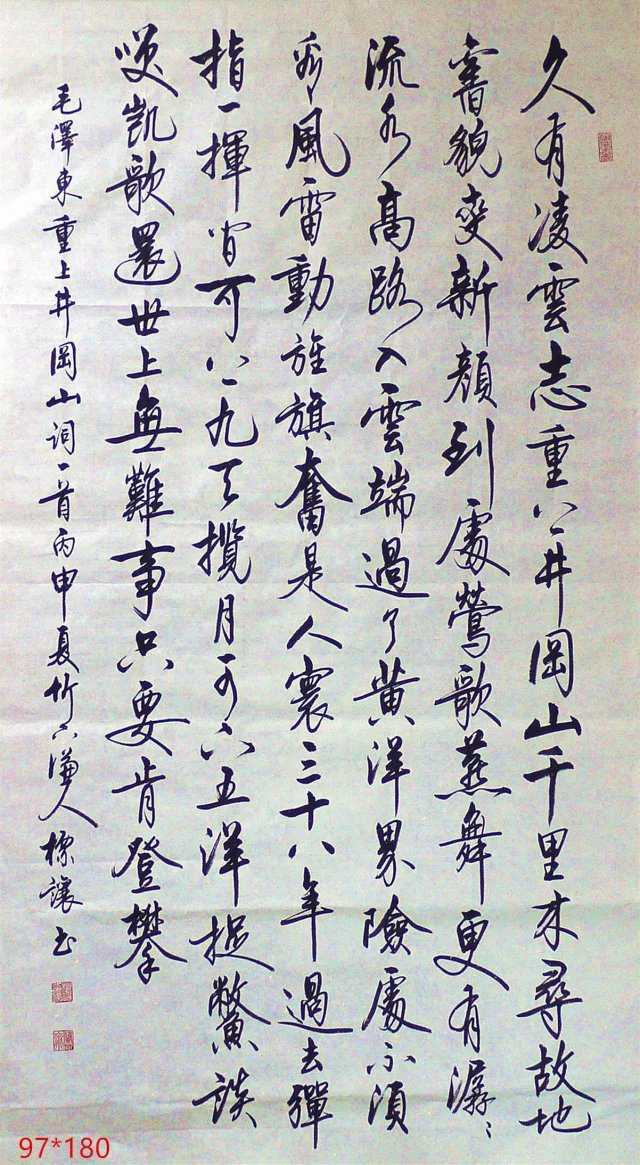 久有凌雲志重上井岡山千里来尋故地
舊貌變新顏到處鶯歌燕舞更有潺〻
流水高路入雲端過了黄洋界險處不須
看風雷動旌旗奮是人寰三十八年過去彈
指一揮間可上九天攬月可下五洋捉鱉談
笑凱歌還世上無難事只要肯登攀
毛澤東重上井岡山詞一首丙申夏竹下謙人標讓书
97*180